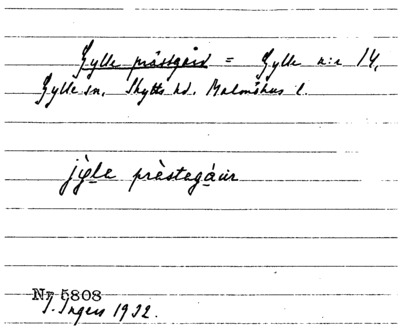 Gylle prästgård = Gylle n:r 14,
Gylle sn. Skytts hd. Malmöhus l.
jỳle prèstegáur
Nr 5808
I. Ingers 1932.